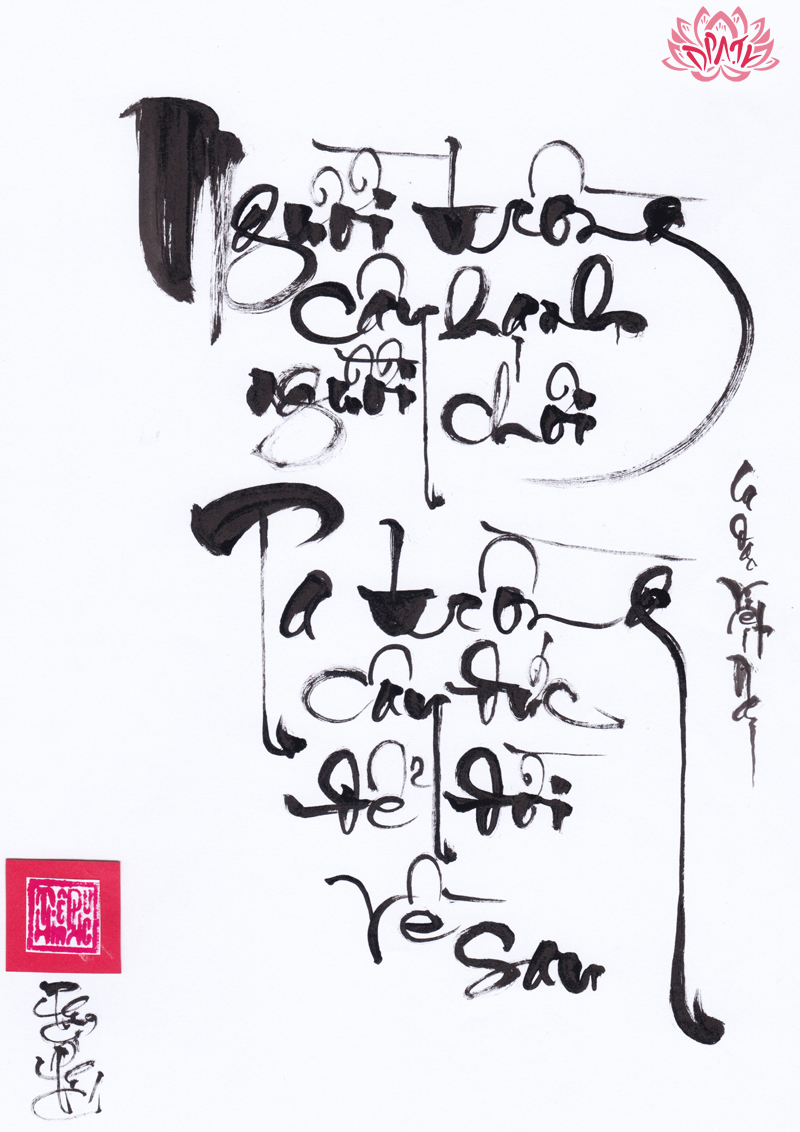 Người trồng
cây hạnh
người chơi
Ta trồng
cây đức
để đời
về sau
Ca dao Việt Nam